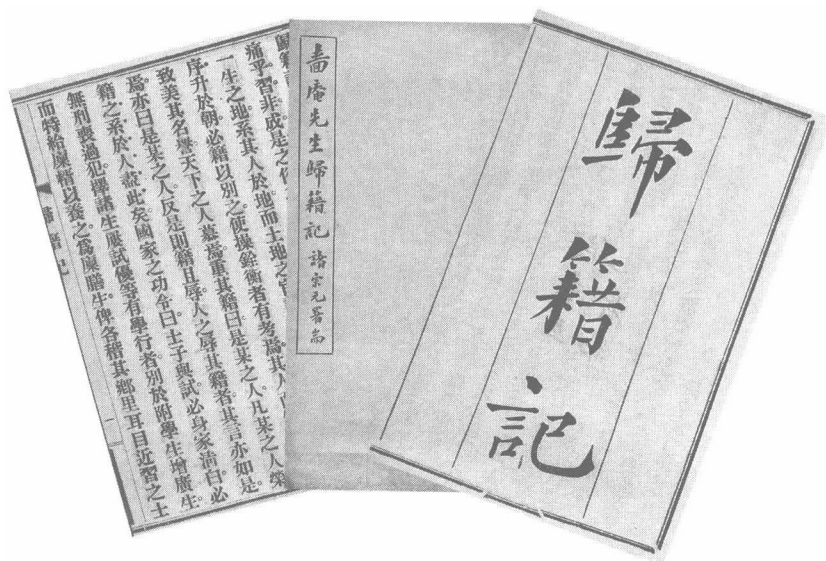 歸籍記
嗇庵先生歸籍記 諸宗元署耑
歸籍
痛乎習非成是之
一生之地系其人於地而土地之官
序升於朝。必籍以別之。便操銓衡者有考焉。其人
致美其名譽。天下之人慕焉。重其籍曰。是某之人。凡某之人榮
焉。亦曰是某之人。反是則籍且辱。人之辱其籍者。其言亦如是。
籍之系於人。葢此矣。國家之功令曰。士子與試。必身家淸白。必
無刑喪過犯。學諸生屢試優等有學行者。別於附學生增廣生。
而特給廩糈以養之。爲廩膳生。俾各稽其鄉里耳目近習之士
歸籍記 一